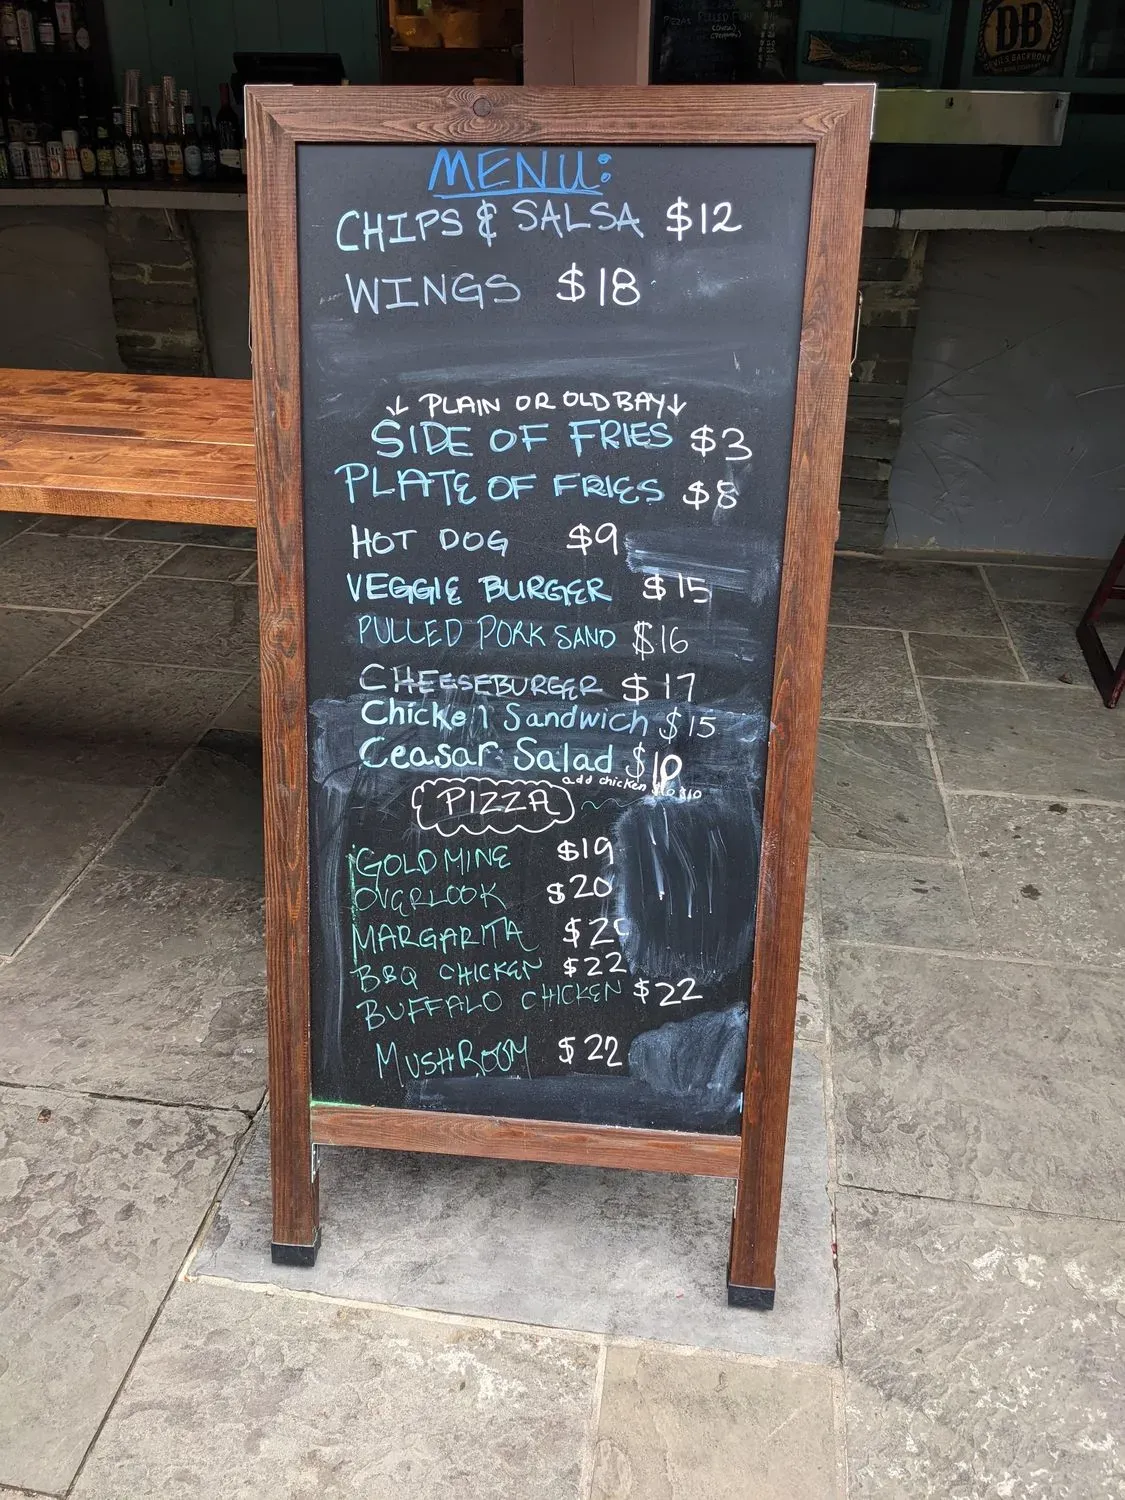 MENU:
CHIPS & SALSA $12
WINGS $18
↓ PLAIN OR OLD BAY ↓
SIDE OF FRIES $3
PLATE OF FRIES $8
HOT DOG $9
VEGGIE BURGER $15
PULLED PORK SAND $16
CHEESEBURGER $17
Chicken Sandwich $15
Ceasar Salad $10
add chicken $10
PIZZA
GOLDMINE $19
OVERLOOK $20
MARGARITA
BBQ CHICKEN $22
BUFFALO CHICKEN $22
MUSHROOM $22
DB
DEVIL'S BACKBONE